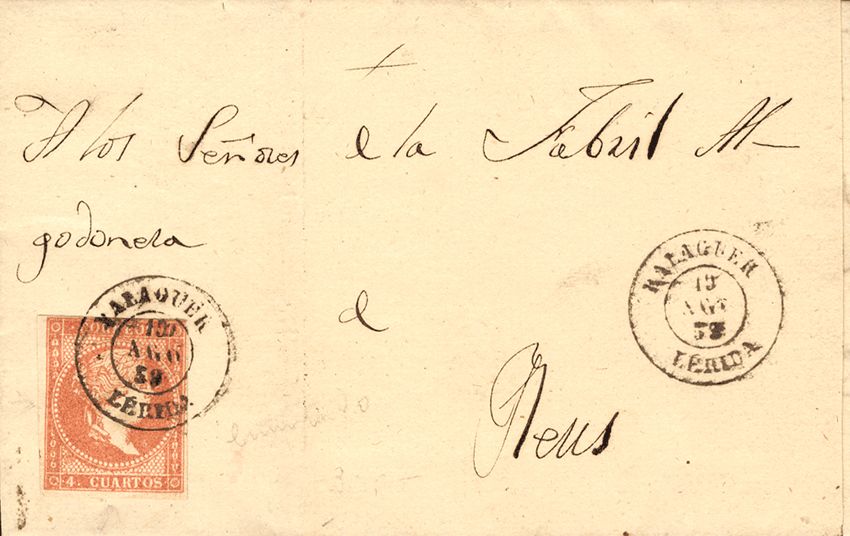 A los Señores de la Fabril Al-
godonera
de
Reus
BALAGUER
19
AGO
59
LÉRIDA
BALAGUER
19
AGO
59
LÉRIDA
CORREOS
4. CUARTOS